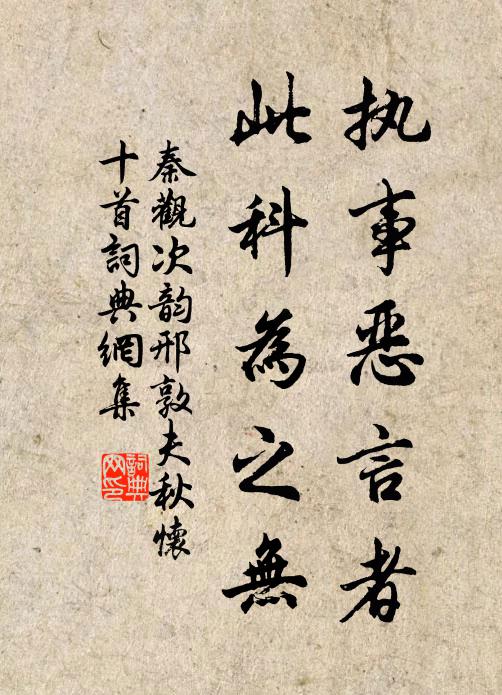 执事恶言者
此科為之無
秦觀次韵邢敦夫秋懷
十首詞典網集
詞典
网印